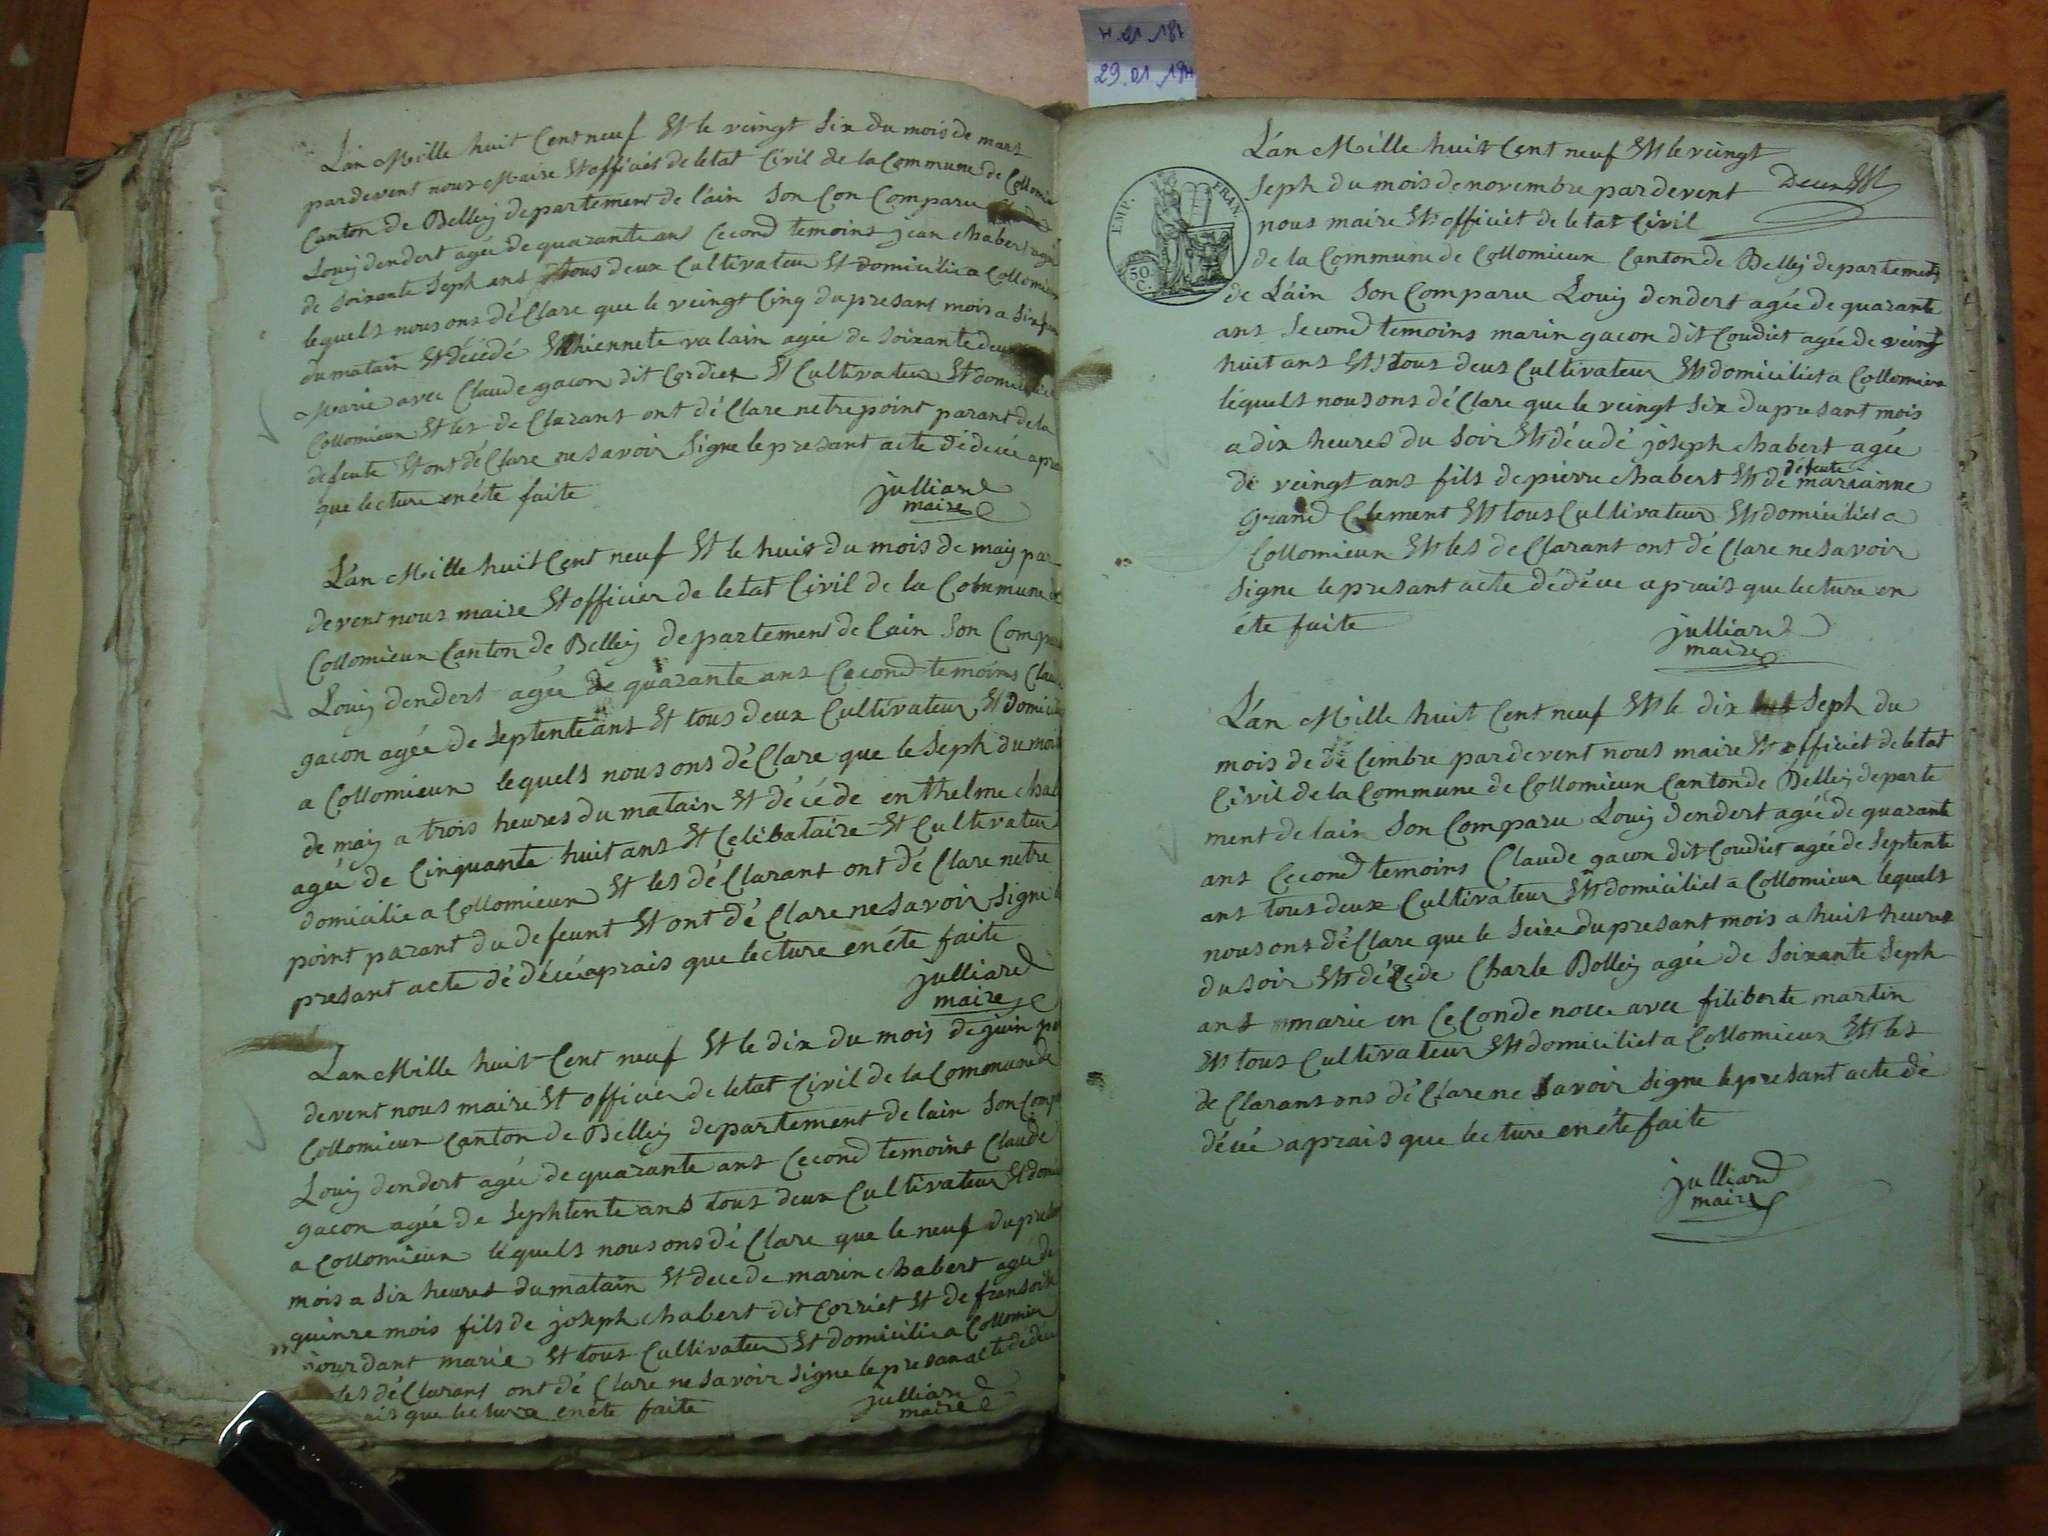 H.01.181
29.01.181
L'an Mille huit Cent neuf Et le veingt Six du mois de mars
pardevent nous Maire Et officiér deletat Civil de la Commune de Collomieu
Canton de Belley departement de l'ain Son Con Comparu
Louij dendert agée de quarante ans Cecond temoins jean chabert
de soixante Seph ans tous deux Cultivateur Et domicilie a Collomieux
lequels nous ons dé Clare que le veingt Cinq du presant mois a Six
du matain Et décédé Ethiennete valain agée de Soixante deux
Marie avec Claude gacon dit Cordier Et Cultivateur Et domicilie
Collomieux Et les de Clarant ont dé Clare netre point parant de la
defente Et ont dé Clare ne savoir Signe le presant acte dé décée
que lecture en éte faite
julliard
maire
L'an Mille huit Cent neuf Et le huit du mois de maij par
devent nous maire Et officier de letat Civil de la Commune de
Collomieux Canton de Belleij departement de lain Son Comparu
Louij dendert agée de quarante ans Cecond temoins Claude
gacon agée de Septente ans Et tous deux Cultivateur Et Domicilie
a Collomieux lequels nous ons dé Clare que le Seph du mois
de maij a trois heures du matain Et décéde enthelme chab
ageé de Cinquante huit ans Et Celébataire Et Cultivateur
domicilie a Collomieux Et les dé Clarant ont dé Clare netre
point parant du defeunt Et ont dé Clare ne savoir Signe le
presant acte dé décé aprais que lecture en éte faite
julliard
maire
L'an Mille huit Cent neuf Et le dix du mois de juin par
devent nous maire Et officier de letat Civil de la Commune de
Collomieux Canton de Belleij departement de lain Son Comp
Louij dendert agée de quarante ans Cecond temoins Claude
gacon agée de Sephtente ans tous deux Cultivateur Et domi
a Collomieux léquels nous ons dé Clare que le neuf du presant
mois a Six heures du matain Et decede marin chabert agé de
quinze mois fils de joseph chabert dit Corriet Et de fransoise
jourdant marié Et tous Cultivateur Et domicilie a Collomieu
les dé Clarant ont dé Clare ne savoir Signe le presan acte dé décé
ais que lectura en éte faite
julliard
maire
L'an Mille huit Cent neuf Et le veingt
Seph du mois de novembre par devent
nous maire Et officiét de letat Civil
de la Commune de Collomieux Canton de Belleij departement
de L'áin Son Comparu Louij dendert agée de quarante
ans Second temoins marin gacon dit Coudiet agée de veingt
huit ans Et tous deux Cultivateur Et domiciliet a Collomieux
léquels nous ons dé Clare que le veingt Six du presant mois
a dix heures du Soir Et décedé joseph chabert agée
de veingt ans fils de pierre chabert Et de défeute marianne
grand Clement Et tous Cultivateur Et domiciliet a
Collomieux Et les de Clarant ont dé Clare ne savoir
Signe le presant acte dé décée aprais que lecture en
éte faite
julliard
maire
EMP. FRAN.
50. C.
L'án Mille huit Cent neuf Et le dix Seph du
mois de dé Cembre pardevent nous maire Et officiet de letat
Civil de la Commune de Collomieux Canton de Belleij departe
ment de lain Son Comparu Louij dendert agée de quarante
ans Cecond temoins Claude gacon dit Coudiet agée de Septente
ans tous deux Cultivateur Et domiciliet a Collomieux lequels
nous ons dé Clare que le Seize du presant mois a huit heures
du soir Et décede Charle Bolleij agée de Soixante Seph
ans marie en Ceconde noce avec filiberte martin
Et tous Cultivateur Et domiciliet a Collomieux Et les
de Clarans ons dé Clare ne Savoir Signe le presant acte dé
décé aprais que lecture en éte faite
julliard
maire